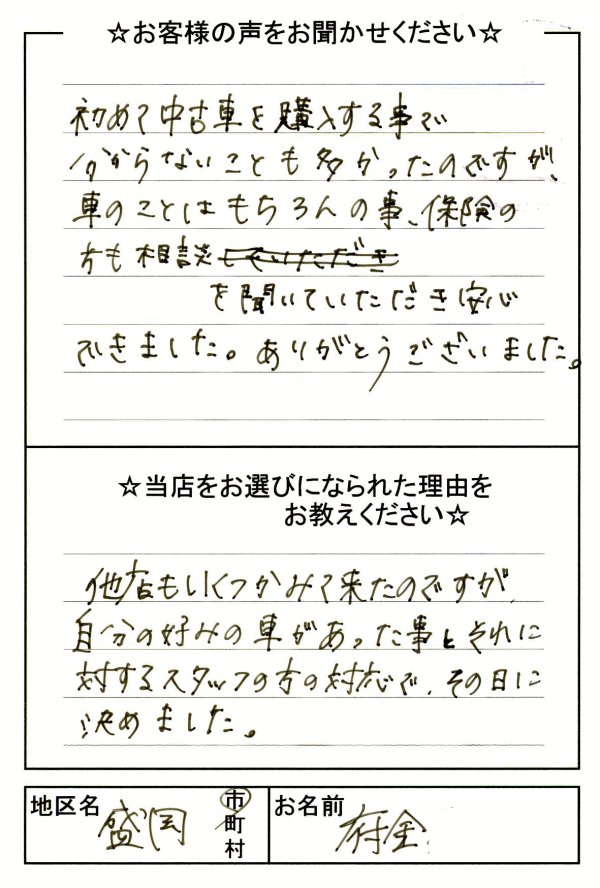 ☆お客様の声をお聞かせください☆
初めて中古車を購入する事で
分からないことも多かったのですが、
車のことはもちろんの事、保険の
方も相談していただき
を聞いていただき安心
できました。ありがとうございました。
☆当店をお選びになられた理由を
お教えください☆
他店もいくつかみて来たのですが
自分の好みの車があった事とそれに
対するスタッフの方の対応で、その日に
決めました。
地区名 盛岡 市町村 お名前 府金